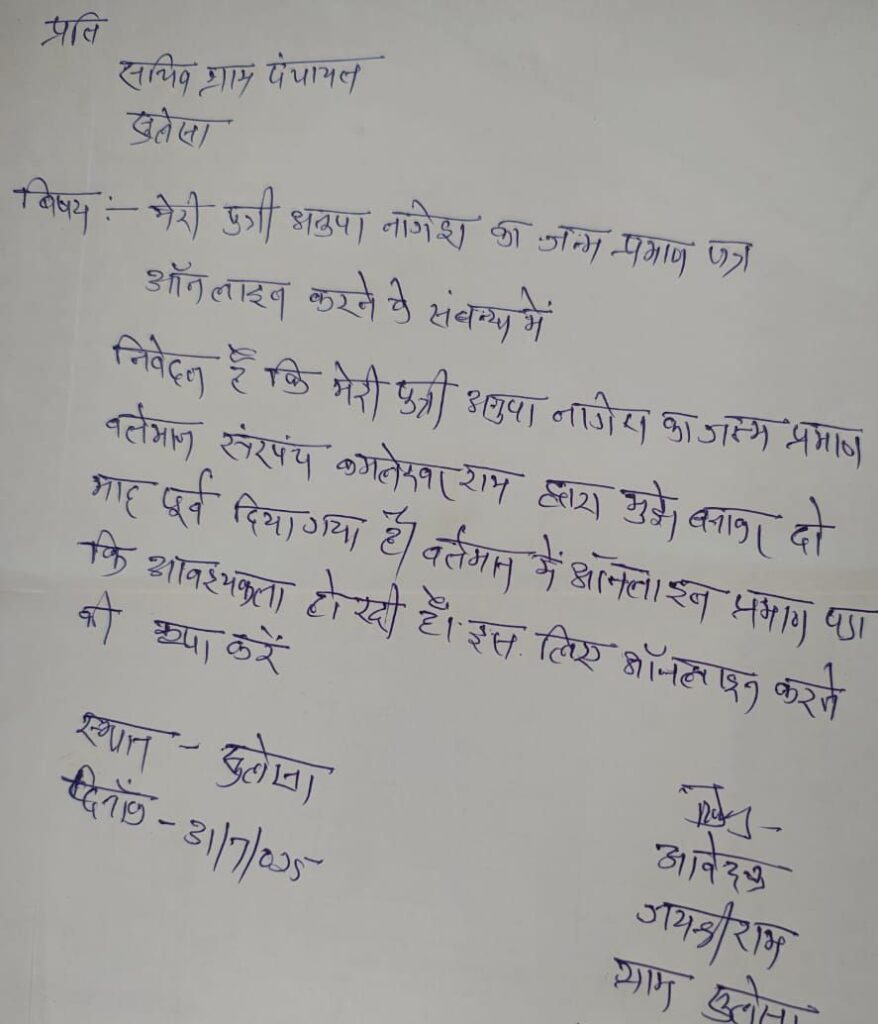 प्रति
सचिव ग्राम पंचायत
सुलेसा
विषय :- मेरी पुत्री अनुपा नागेश का जन्म प्रमाण पत्र
ऑनलाइन करने के संबन्ध में
निवेदन है कि मेरी पुत्री अनुपा नागेश का जन्म प्रमाण
वर्तमान सरपंच कमलेश्वर राम द्वारा मुझे बनाकर दो
माह पूर्व दिया गया है। वर्तमान में ऑनलाइन प्रमाण पत्र
कि आवश्यकता हो रही है। इस लिए ऑनलाइन करने
की कृपा करें
स्थान - सुलेसा
दिनाँक - 31/7/025
आवेदक
जयश्री राम
ग्राम सुलेसा